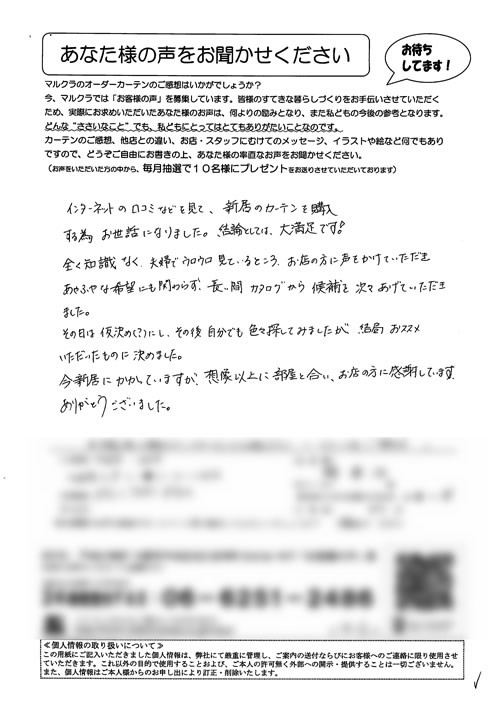 あなた様の声をお聞かせください
お待ち
してます！
マルクラのオーダーカーテンのご感想はいかがでしょうか？
今、マルクラでは「お客様の声」を募集しています。皆様のすてきな暮らしづくりをお手伝いさせていただく
ため、実際にお求めいただいたあなた様のお声は、何よりの励みとなり、また私どもの今後の参考となります。
どんな“ささいなこと”でも、私どもにとってはとてもありがたいことなのです。
カーテンのご感想、他店との違い、お店・スタッフにむけてのメッセージ、イラストや絵など何でもあり
ですので、どうぞご自由にお書きの上、あなた様の率直なお声をお聞かせください。
（お声をいただいた方の中から、毎月抽選で１０名様にプレゼントをお送りさせていただいております）
インターネットの口コミなどを見て、新居のカーテンを購入
する為お世話になりました。結論としては、大満足です！
全く知識なく、夫婦でウロウロ見ているところ、お店の方に声をかけていただき
あやふやな希望にも関わらず、長い間カタログから候補を次々あげていただき
ました。
その日は仮決め(?)にし、その後自分でも色々探してみましたが、結局おススメ
いただいたものに決めました。
今新居にかかしていますが、想像以上に部屋と合い、お店の方に感謝しています。
ありがとうございました。
06-6251-2486
≪個人情報の取り扱いについて≫
この用紙にご記入いただきました個人情報は、弊社にて厳重に管理し、ご案内の送付ならびにお客様へのご連絡に限り使用させ
ていただきます。これ以外の目的で使用することおよび、ご本人の許可無く外部への開示・提供することは一切ございません。
また、個人情報はご本人様からのお申し出により訂正・削除いたします。